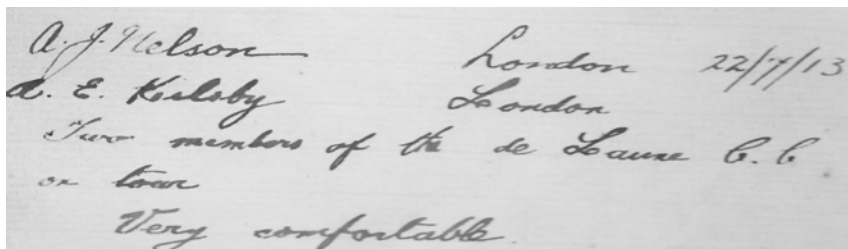 A. J. Nelson London 22/7/13
A. E. Keilsby London
Two members of the de Laune C. C.
on tour
Very comfortable